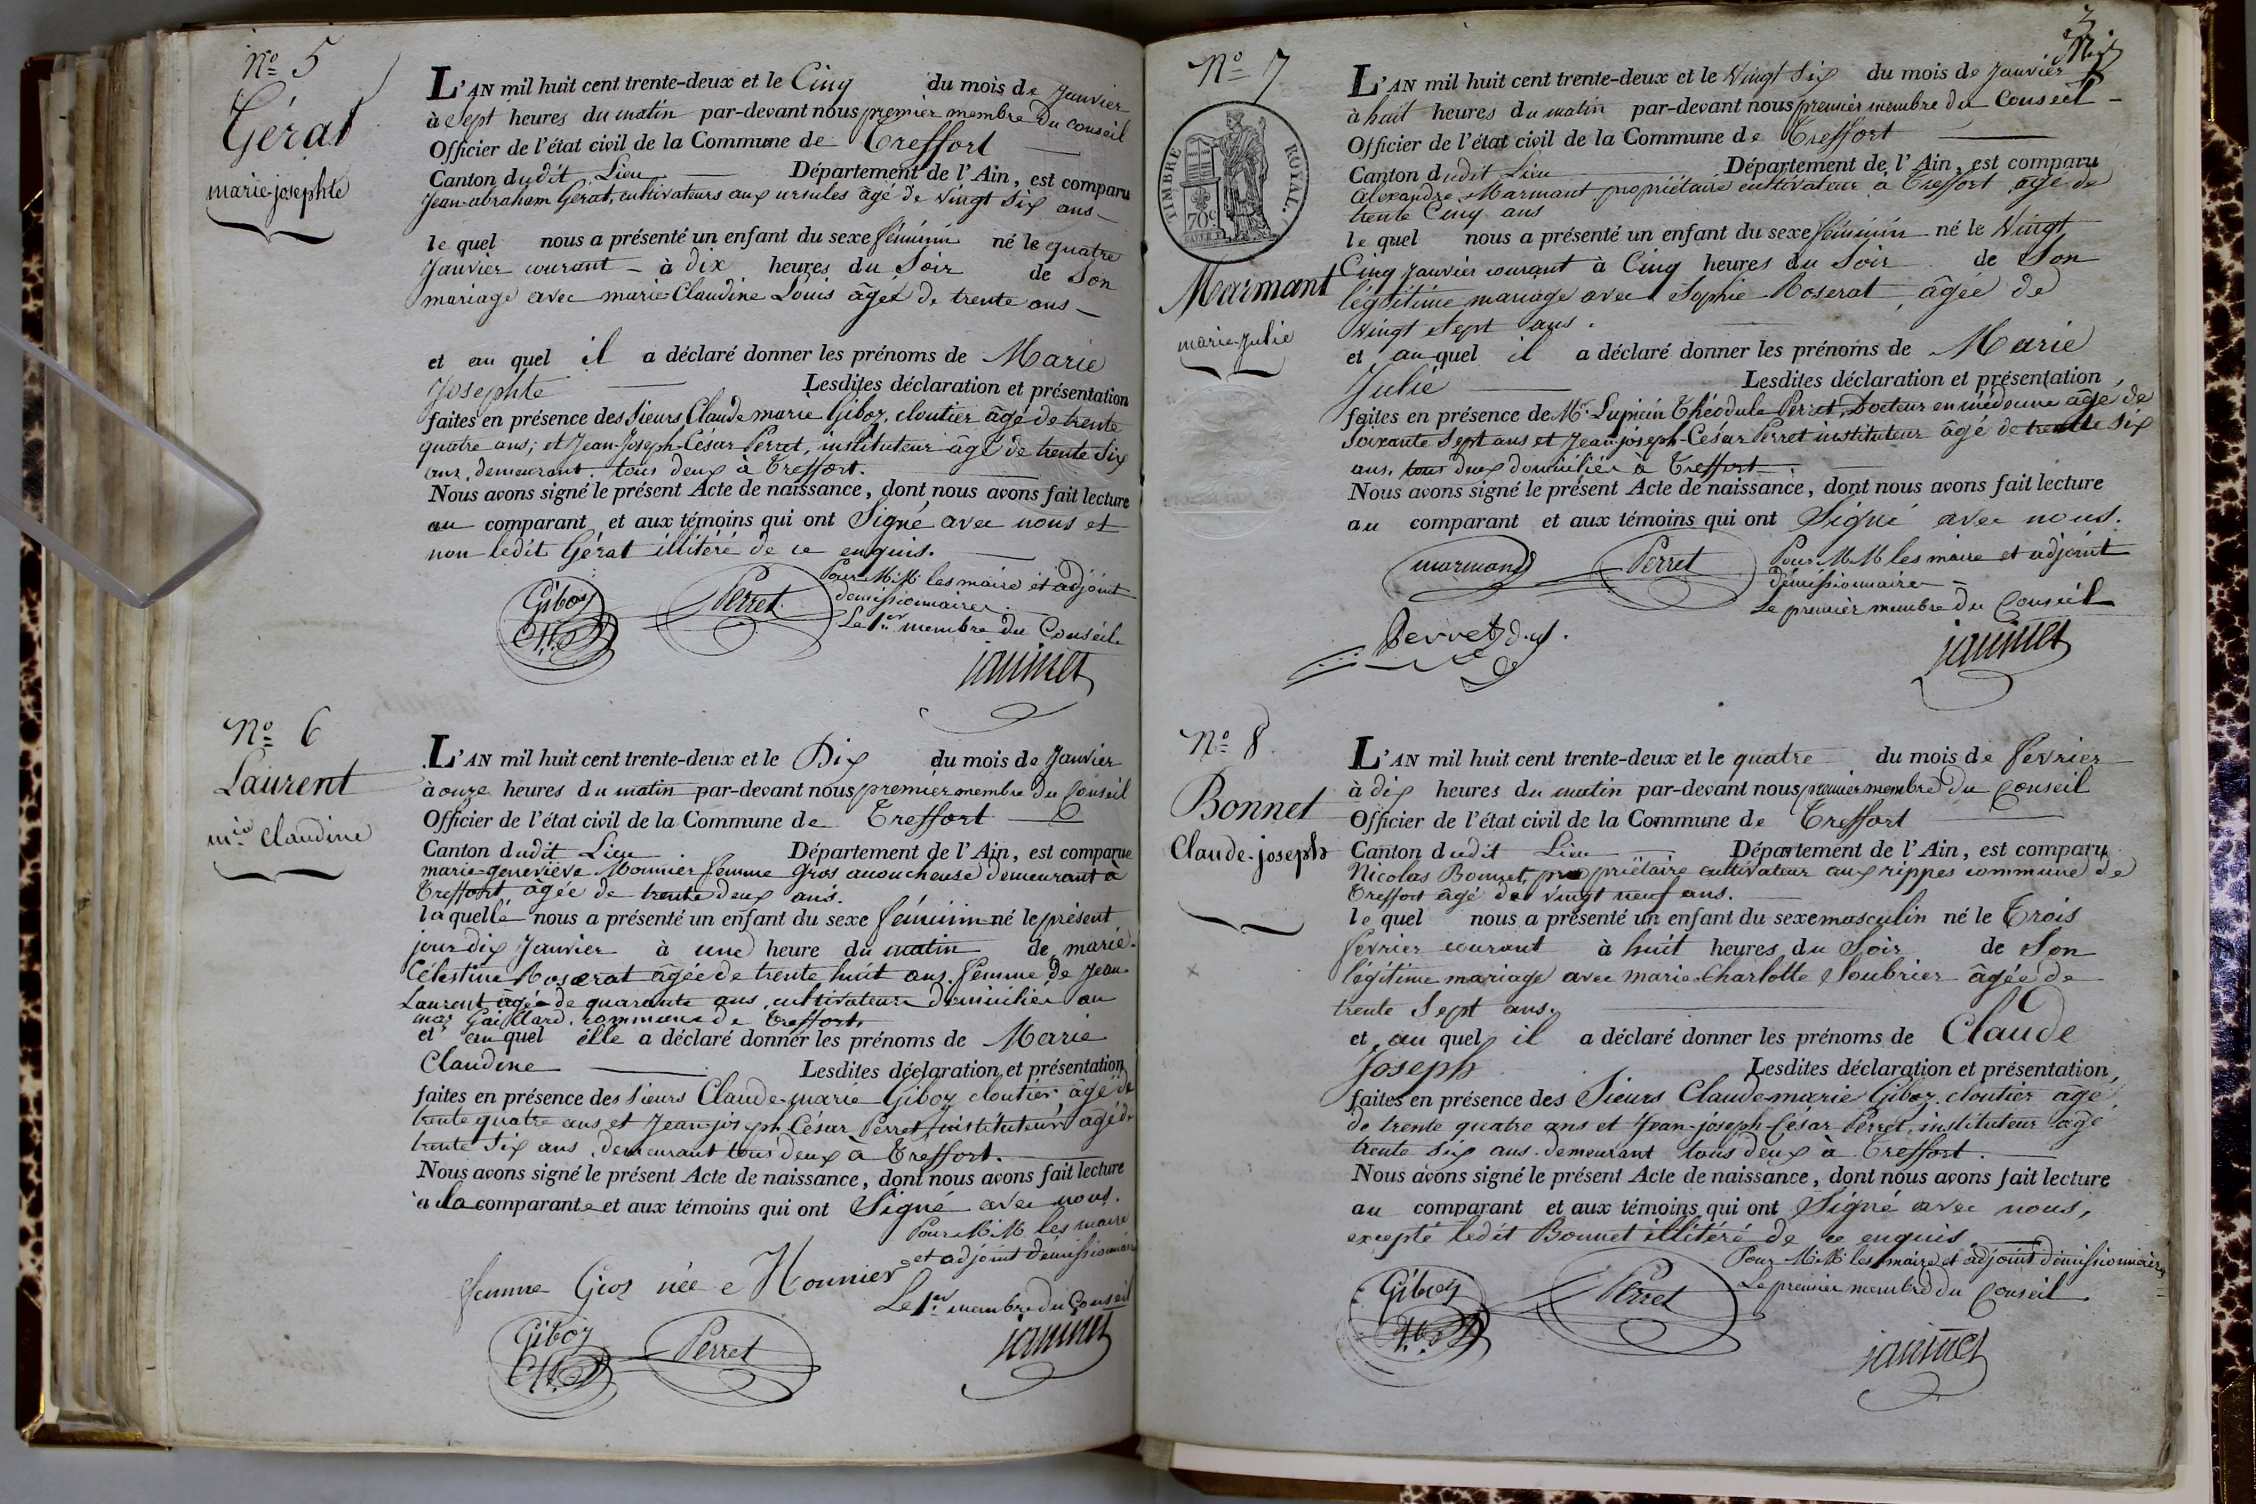 N° 5
Gérat
marie josephte
L'AN mil huit cent trente-deux et le Cinq du mois de Janvier
à Sept heures du matin par-devant nous premier membre du conseil
Officier de l'état civil de la Commune de Treffort
Canton dudit Lieu Département de l'Ain, est comparu
Jean-abraham Gérat, cultivateurs aux ursules âgé de vingt Six ans
lequel nous a présenté un enfant du sexe féminin né le quatre
Janvier courant à dix heures du Soir de Son
mariage avec marie Claudine Louis âgée de trente ans
et au quel il a déclaré donner les prénoms de Marie
Josephte Lesdites déclaration et présentation
faites en présence des Sieurs Claude marie Giboz, cloutier âgé de trente
quatre ans; et Jean-Joseph-César Perret, instituteur âgé de trente Six
ans, demeurant tous deux à Treffort.
Nous avons signé le présent Acte de naissance, dont nous avons fait lecture
au comparant et aux témoins qui ont Signé avec nous et
non ledit Gérat illitéré de ce enquis.
Pour M.M. les maire et adjoint
démissionnaires
Le 1er membre du Conseil
Giboz
Perret
janinet
N° 6
Laurent
mie Claudine
L'AN mil huit cent trente-deux et le Dix du mois de Janvier
à onze heures du matin par-devant nous premier membre du Conseil
Officier de l'état civil de la Commune de Treffort
Canton dudit Lieu Département de l'Ain, est comparue
marie-geneviève Mounier femme Gros acoucheuse demeurant à
Treffort âgée de trente deux ans.
laquelle nous a présenté un enfant du sexe féminin né le présent
jour dix Janvier à une heure du matin de marie
Célestine Roserat âgée de trente huit ans, femme de Jean
Laurent âgé de quarante ans, cultivateurs domiciliés au
mas Gaillard, commune de Treffort,
et au quel elle a déclaré donner les prénoms de Marie
Claudine Lesdites déclaration et présentation
faites en présence des Sieurs Claude-marie Giboz cloutier, âgé de
trente quatre ans et Jean-joseph-César Perret, instituteur âgé de
trente Six ans, demeurant tous deux à Treffort.
Nous avons signé le présent Acte de naissance, dont nous avons fait lecture
à la comparante et aux témoins qui ont Signé avec nous.
Pour M.M. les maire
et adjoint démissionnaires
Le 1er membre du Conseil
femme Gros née Mounier
Giboz
Perret
janinet
3
N° 7
TIMBRE ROYAL.
70c
Marmant
marie-Julie
L'AN mil huit cent trente-deux et le Vingt Six du mois de Janvier
à huit heures du matin par-devant nous premier membre du Conseil
Officier de l'état civil de la Commune de Treffort
Canton dudit Lieu Département de l'Ain, est comparu
alexandre Marmant propriétaire cultivateur à Treffort âgé de
trente Cinq ans
lequel nous a présenté un enfant du sexe féminin né le Vingt
Cinq Janvier courant à Cinq heures du Soir de Son
légitime mariage avec Sophie Roserat, âgée de
vingt Sept ans.
et au quel il a déclaré donner les prénoms de Marie
Julie Lesdites déclaration et présentation,
faites en présence de Mr. Lupicin Théodule Perret, Docteur en médecine âgé de
Soixante Sept ans et Jean-joseph-César Perret instituteur âgé de trente Six
ans, tous deux domiciliés à Treffort
Nous avons signé le présent Acte de naissance, dont nous avons fait lecture
au comparant et aux témoins qui ont Signé avec nous.
marmand
Perret
Pour M.M. les maire et adjoint
démissionnaires
Le premier membre du Conseil
Perret d.m.
janinet
N° 8
Bonnet
Claude-joseph
L'AN mil huit cent trente-deux et le quatre du mois de fevrier
à dix heures du matin par-devant nous premier membre du Conseil
Officier de l'état civil de la Commune de Treffort
Canton dudit Lieu Département de l'Ain, est comparu
Nicolas Bonnet, propriétaire cultivateur aux rippes commune de
Treffort âgé de vingt neuf ans.
lequel nous a présenté un enfant du sexe masculin né le Trois
fevrier courant à huit heures du Soir de Son
légitime mariage avec marie-Charlotte Soubrier âgée de
trente Sept ans,
et au quel il a déclaré donner les prénoms de Claude
Joseph Lesdites déclaration et présentation,
faites en présence des Sieurs Claude-marie Giboz, cloutier âgé
de trente quatre ans et Jean-joseph-César Perret, instituteur âgé
trente six ans, demeurant tous deux à Treffort.
Nous avons signé le présent Acte de naissance, dont nous avons fait lecture
au comparant et aux témoins qui ont Signé avec nous,
excepté ledit Bonnet illitéré de ce enquis
Pour M.M. les maire et adjoint démissionnaires
Le premier membre du Conseil
Giboz
Perret
janinet